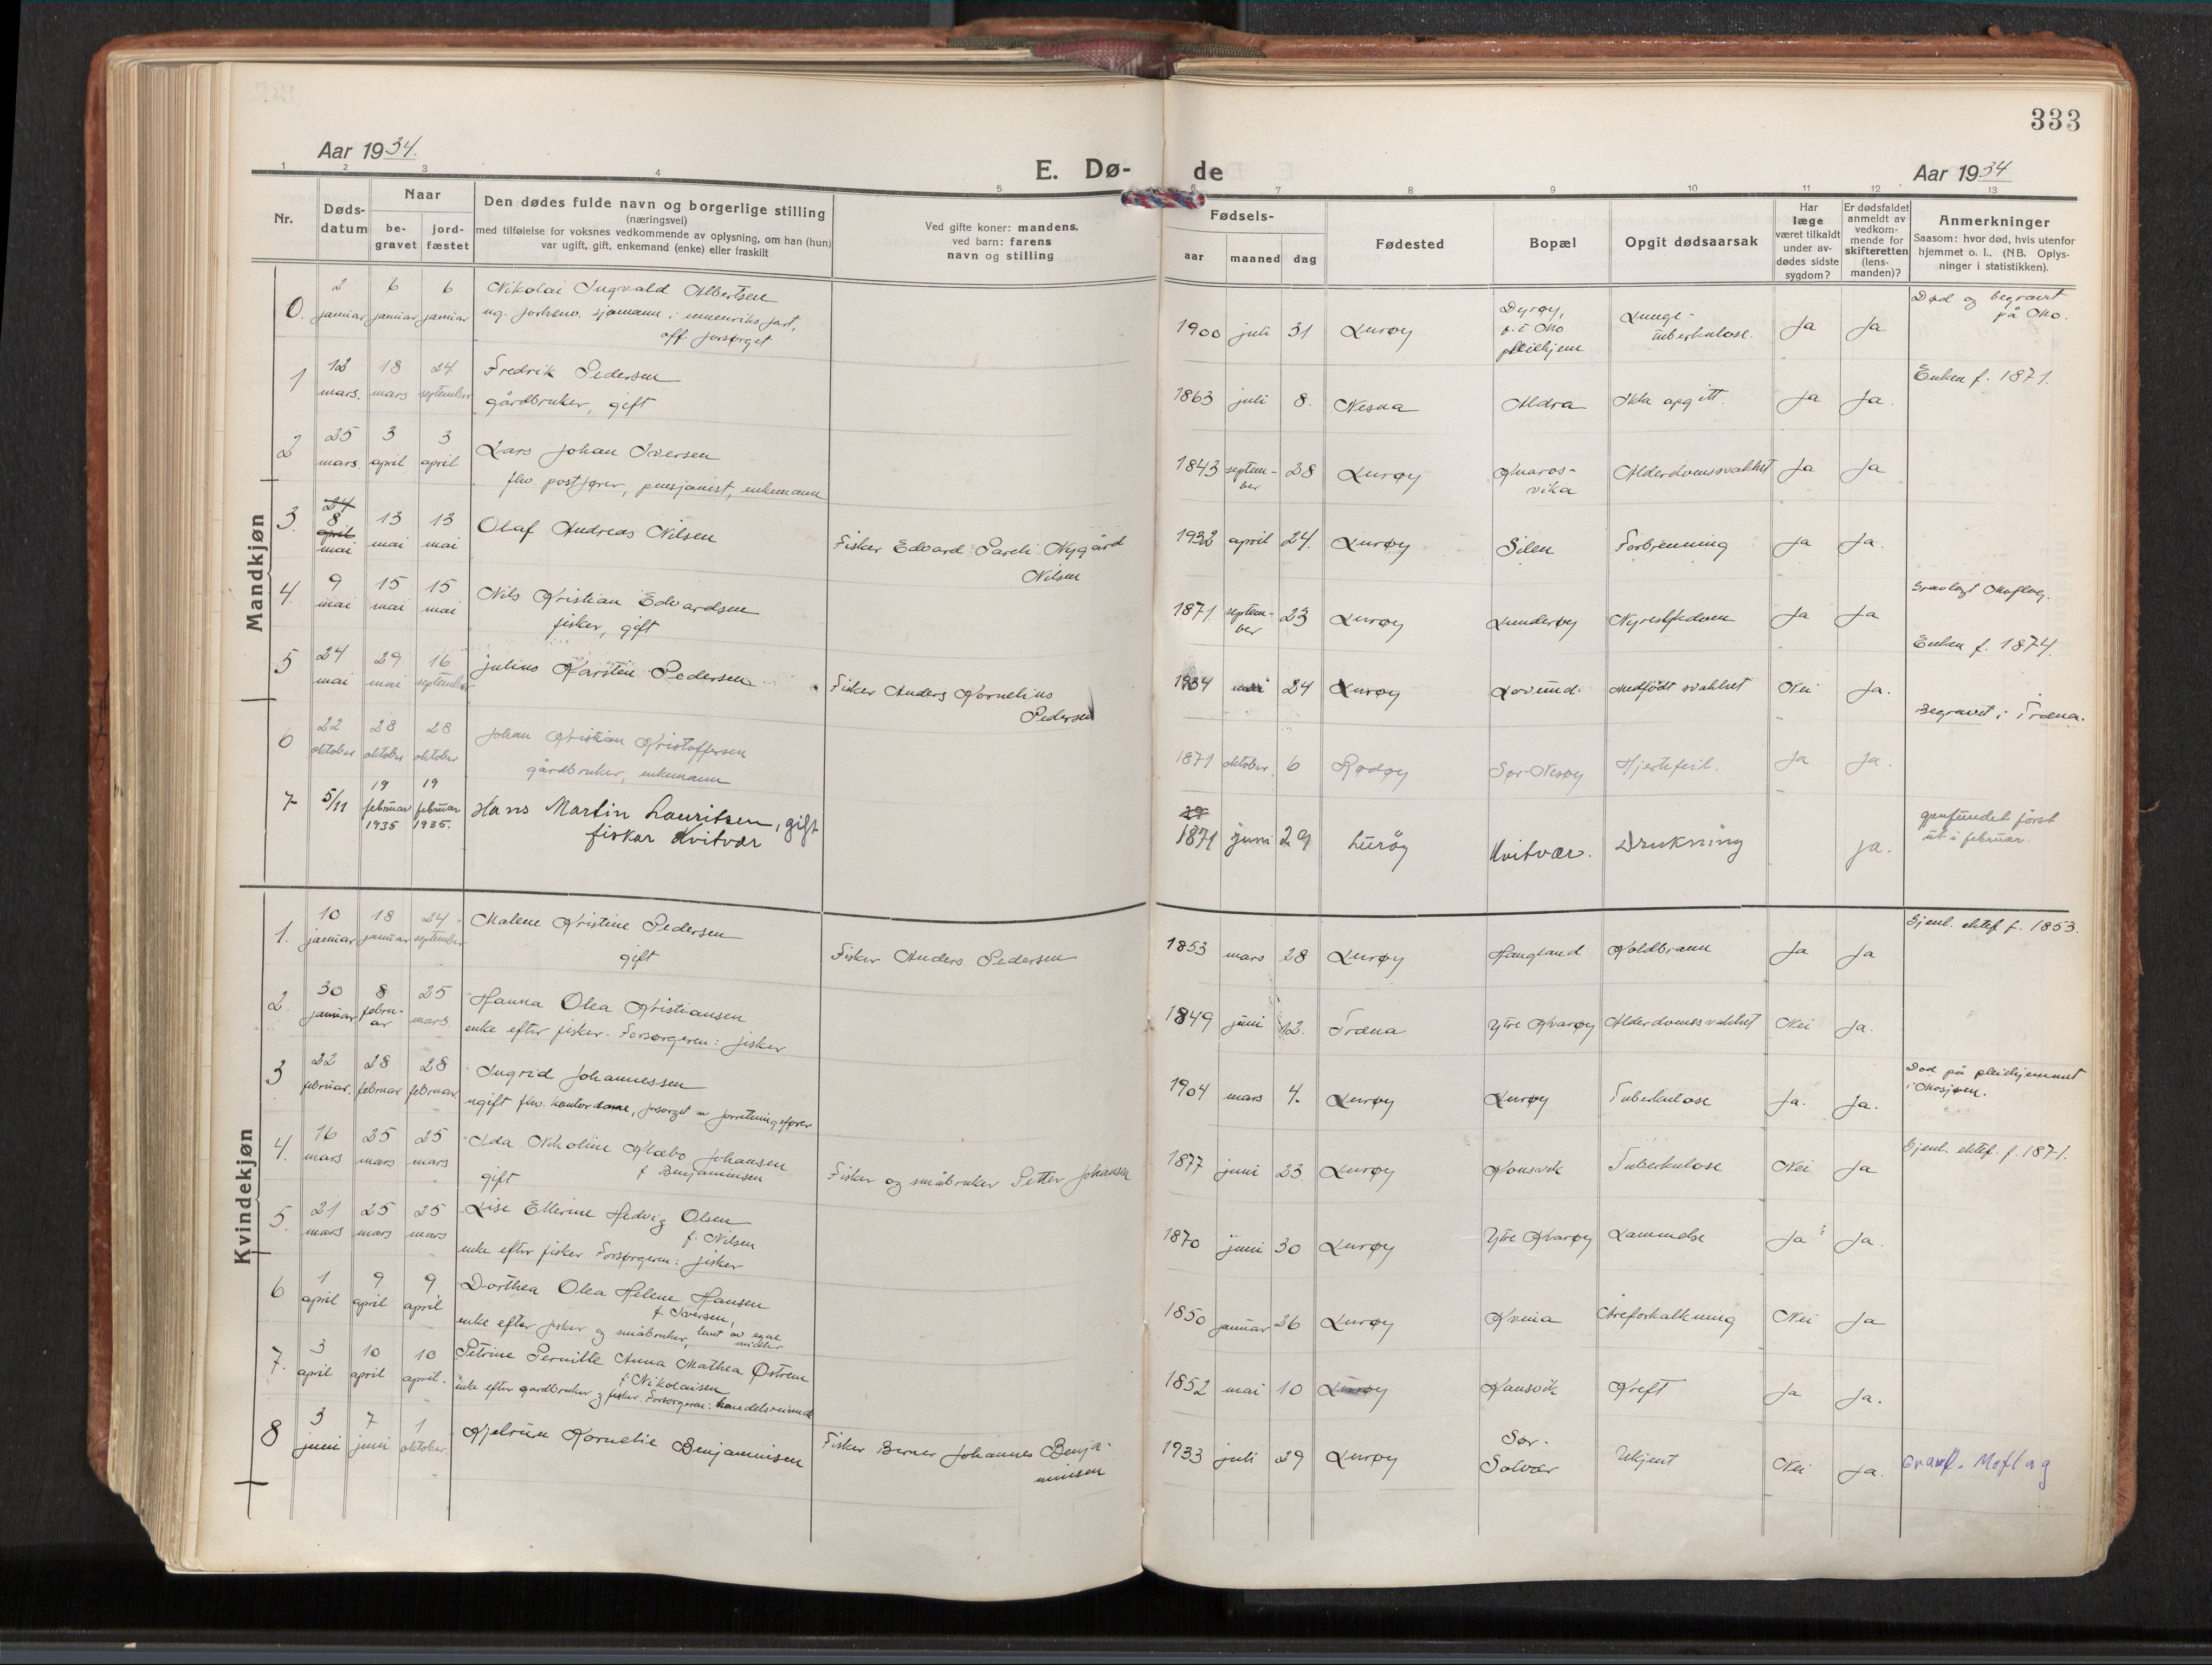 333
Aar 1934.
E. Dø-
de
Aar 1934
1 2 3 4 5 6 7 8 9 10 11 12 13
Nr.
Døds-
datum
Naar
be-
gravet
jord-
fæstet
Den dødes fulde navn og borgerlige stilling
(næringsvei)
med tilføielse for voksnes vedkommende av oplysning, om han (hun)
var ugift, gift, enkemand (enke) eller fraskilt
Ved gifte koner: mandens,
ved barn: farens
navn og stilling
Fødsels-
aar maaned dag
Fødested
Bopæl
Opgit dødsaarsak
Har
læge
været tilkaldt
under av-
dødes sidste
sygdom?
Er dødsfaldet
anmeldt av
vedkom-
mende for
skifteretten
(lens-
manden)?
Anmerkninger
Saasom: hvor død, hvis utenfor
hjemmet o. l.. (NB. Oplys-
ninger i statistikken).
Mandkjøn
0. 2 januar 6 januar 6 januar
Nikolai Ingvald Albertsen
ug. forhenv. sjømann i innenriks fart,
off. forsørget
1900 juli 31 Lurøy
Dyrøy,
p.t. Mo
pleiehjem
Lunge-
tuberkulose.
Ja Ja
Død og begravet
på Mo.
1 12 mars. 18 mars 24 september
Fredrik Pedersen
gårdbruker, gift
1863 juli 8. Nesna Aldra Ikke opgitt. Ja Ja.
Enken f. 1871.
2 25 mars. 3 april 3 april
Lars Johan Iversen
fhv. postfører, pensjonist, enkemann
1843 septem-
ber 28 Lurøy
Kvaros-
vika
Alderdomssvakhet Ja Ja
3. 24 april 8 mai 13 mai 13 mai
Olaf Andreas Nilsen
Fisker Edvard Pareli Nygård
Nilsen
1932 april 24. Lurøy Silen Forbrenning Ja Ja.
4. 9 mai 15 mai 15 mai
Nils Kristian Edvardsen
fisker, gift
1871 septem-
ber 23 Lurøy Lunderøy Nyresykdom Ja Ja
Gravlagt Moflag.
Enken f. 1874.
5 24 mai 29 mai 16 september
Julius Karsten Pedersen
Fisker Anders Kornelius
Pedersen
1934 mai 24 Lurøy Lovund. Medfødt svakhet Nei Ja.
Begravet i Træna.
6 22 oktober 28 oktober 28 oktober
Johan Kristian Kristoffersen
gårdbruker, enkemann
1871 oktober 6 Rødøy Sør-Nesøy Hjertefeil. Ja Ja.
7 5/11 19 februar 1935 19 februar 1935.
Hans Martin Lauritsen, gift
fisker Kvitvær
29
1871 juni 29 Lurøy Kvitvær. Drukning ja.
gjenfundet først
ut i februar.
Kvindekjøn
1. 10 januar 18 januar 24 september
Malene Kristine Pedersen
gift
Fisker Anders Pedersen
1853 mars 28 Lurøy Haugland Koldbrann Ja Ja
Gjenl. ektef f. 1853.
2. 30 januar 8 febru-
ar 25 mars.
Hanna Olea Kristiansen
enke efter fisker. Forsørgeren: fisker
1849 juni 12. Træna Ytre Kvarøy Alderdomssvakhet Nei Ja.
3 22 februar. 28 februar 28 februar.
Ingrid Johannessen
ugift fhv. kontordame, forsørget av forretningsfører
1904 mars 4. Lurøy Lurøy Tuberkulose Ja. Ja.
Død på pleiehjemmet
i Mosjøen.
4. 16 mars 25 mars 25 mars
Ida Nikoline Klæbo Johansen
f. Benjaminsen
gift
Fisker og småbruker Petter Johansen
1877 juni 23. Lurøy Konsvik Tuberkulose Nei Ja
Gjenl. ektef. f. 1871.
5. 21 mars 25 mars 25 mars
Lise Ellerine Hedvig Olsen
f. Nilsen
enke efter fisker. Forsørgeren: fisker
1870 juni 30 Lurøy Ytre Kvarøy Lammelse Ja Ja.
6 1 april 9 april 9 april
Dorthea Olea Helene Hansen
f. Iversen,
enke efter fisker og småbruker, levet av egne
midler
1850 januar 26 Lurøy Kvina Åreforkalkning Nei Ja
7. 3 april 10 april 10 april.
Petrine Pernille Anna Mathea Østrem
f. Nikolaisen
enke efter gårdbruker og fisker. Forsørgeren: handelsreisende
1852 mai 10 Lurøy Konsvik Kreft Ja Ja.
8 3 juni 7 juni 1 oktober.
Kjelrun Kornelie Benjaminsen
Fisker Berner Johannes Benja-
minsen
1933 juli 29 Lurøy
Sør-
Solvær
Ukjent Nei Ja.
Gravpl. Moflag